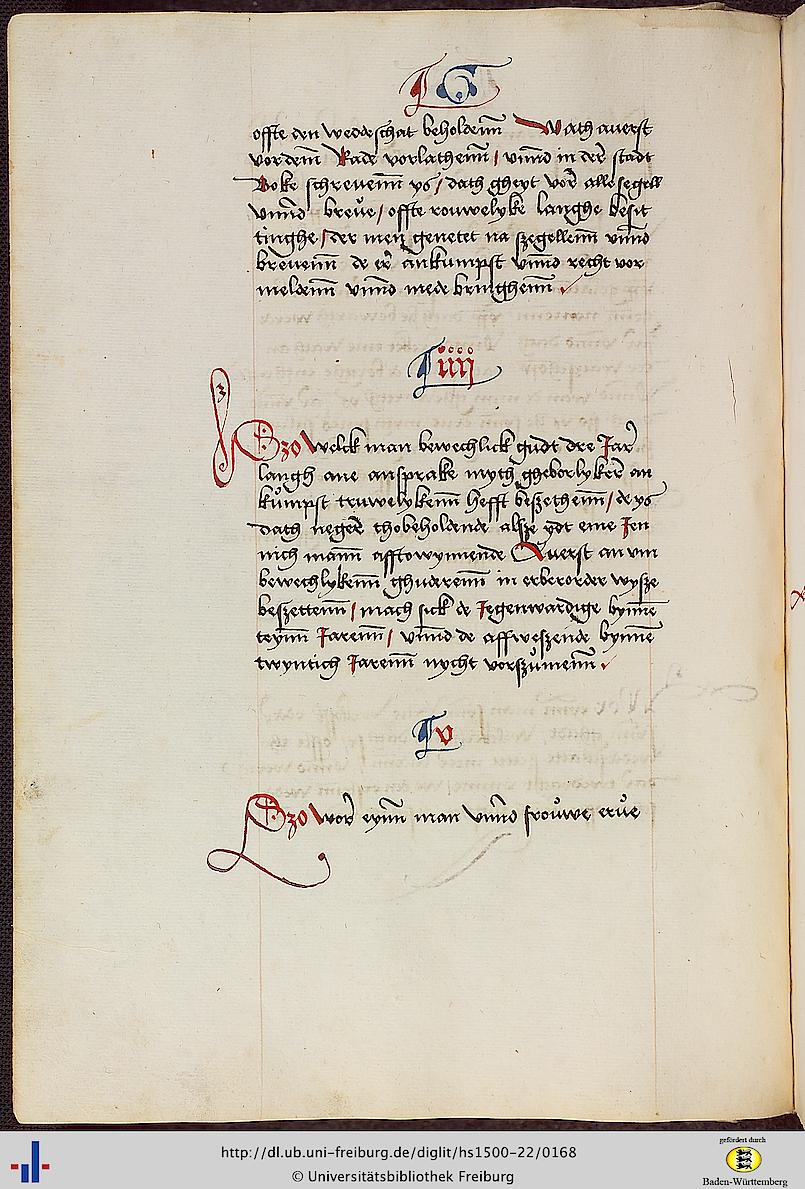 G
offte den wedderschat beholdenn Wath auerst
vor dem Rade vorlathenn / vnnd in der stadt
Boke schreuenn ys / dath gheyt vor alle segell
vnnd breue / offte rouwelyke langhe besit
tinghe / der men genetet na szegellenn vnnd
breuenn de er ankumpst vnnd recht vor
meldenn vnnd mede bringhenn
iiij
Szo welck man bewechlick gudt dre Jar
langh ane ansprake myth gheborlyker an
kumpst truwelykenn hefft beszethenn / de ys
dath neger thobeholdende alsze ydt eme Jen
nich mann afftowynnende Auerst an vn
bewechlykenn ghuderenn in erberorder wysze
beszettenn / mach sick de Jegenwardige bynnen
teynn Jarenn / vnnd de affweszende bynnen
twyntich Jarenn nycht vorszumenn
v
Szo wor eynn man vnnd frouwe erue
http://dl.ub.uni-freiburg.de/diglit/hs1500-22/0168
© Universitätsbibliothek Freiburg
gefördert durch
Baden-Württemberg